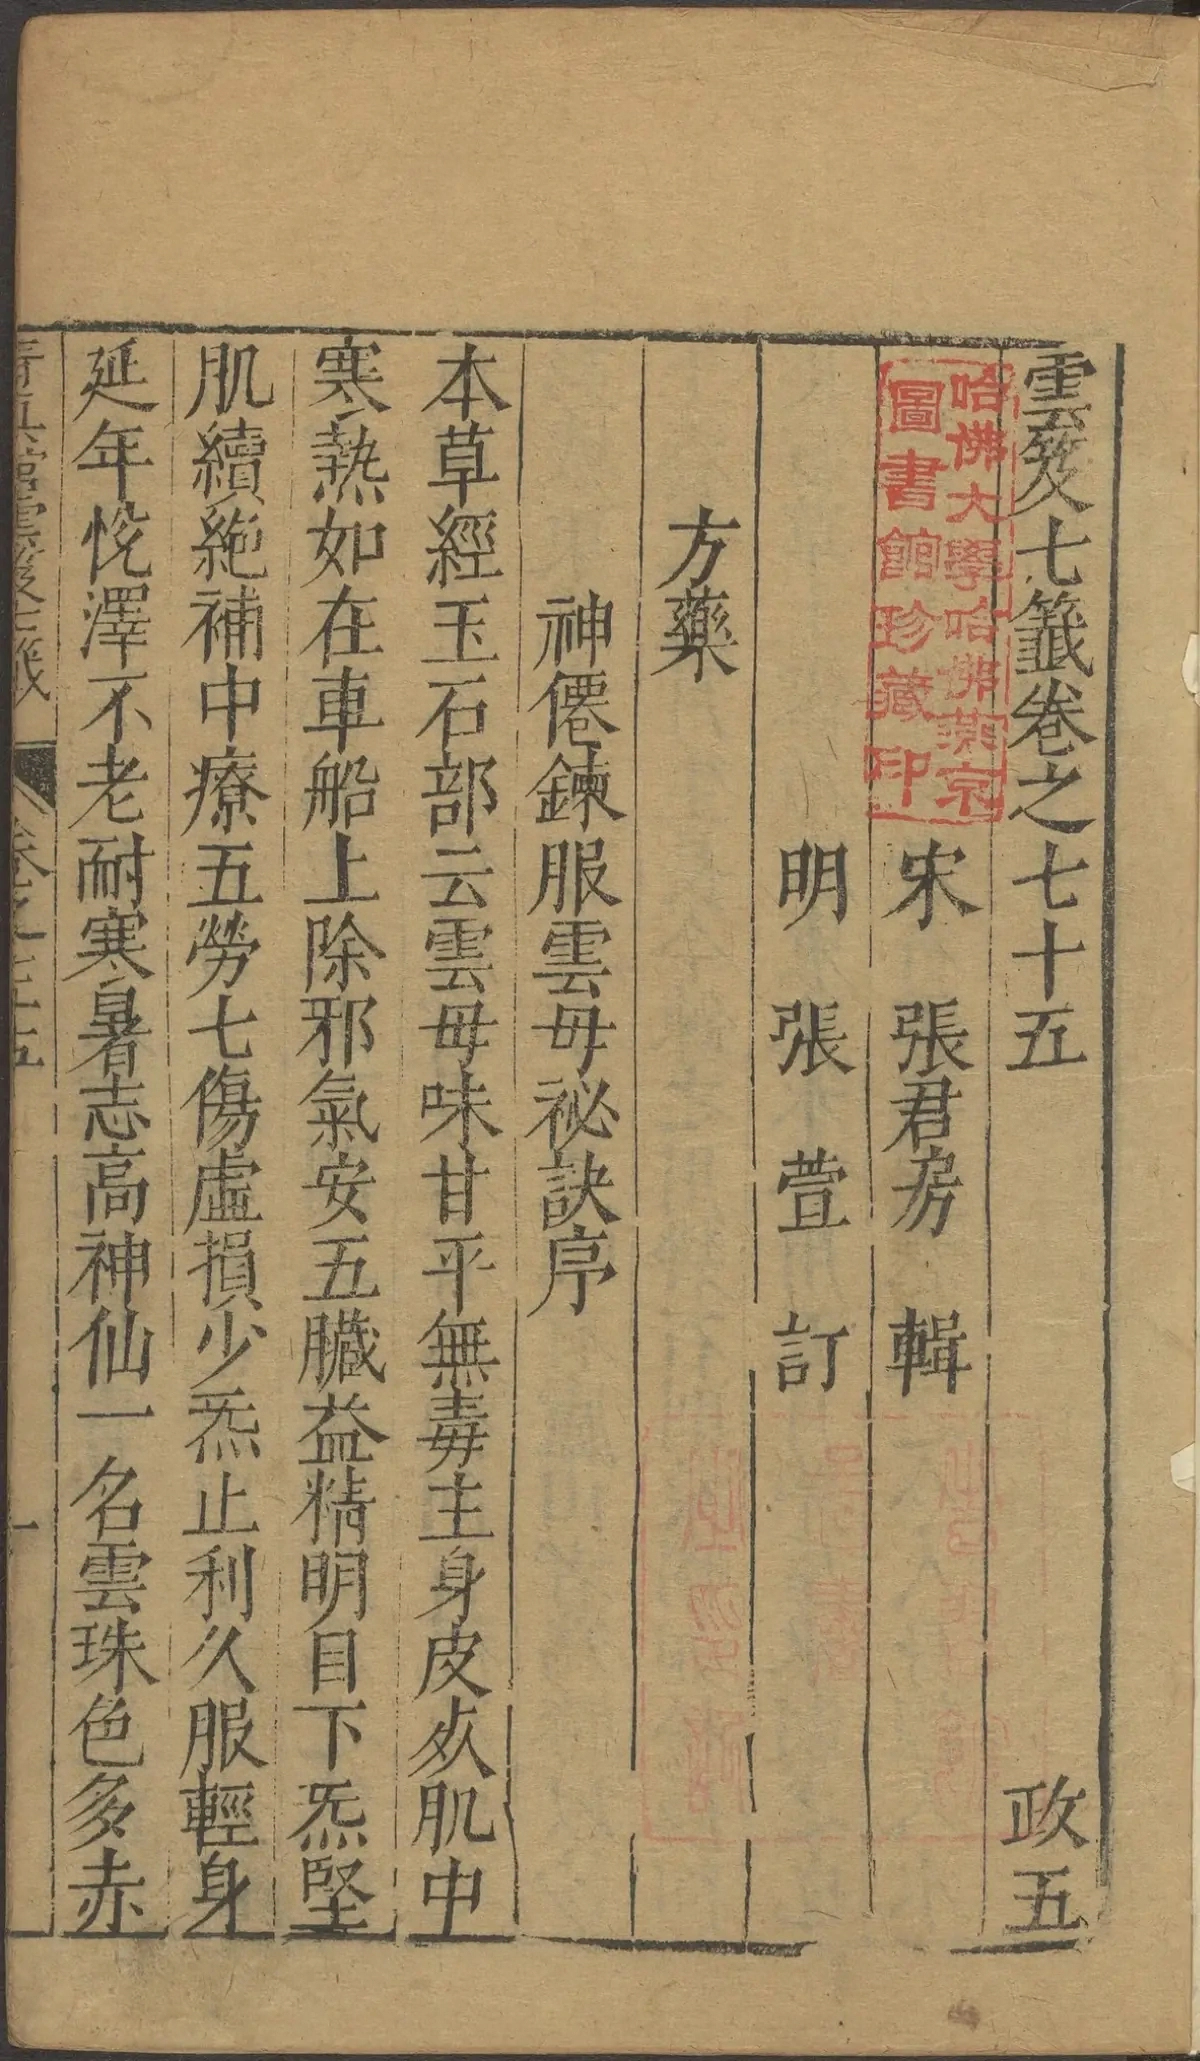 雲笈七籤卷之七十五 政五
宋 張君房 輯
明 張萱 訂
方藥
神僊鍊服雲母祕訣序
本草經玉石部云雲母味甘平無毒主身皮𣦸肌中
寒熱如在車船上除邪氣安五臟益精明目下炁堅
肌續絶補中療五勞七傷虛損少炁止利久服輕身
延年恱澤不老耐寒暑志高神仙一名雲珠色多赤
哈佛大學哈佛燕京
圖書館珍藏印